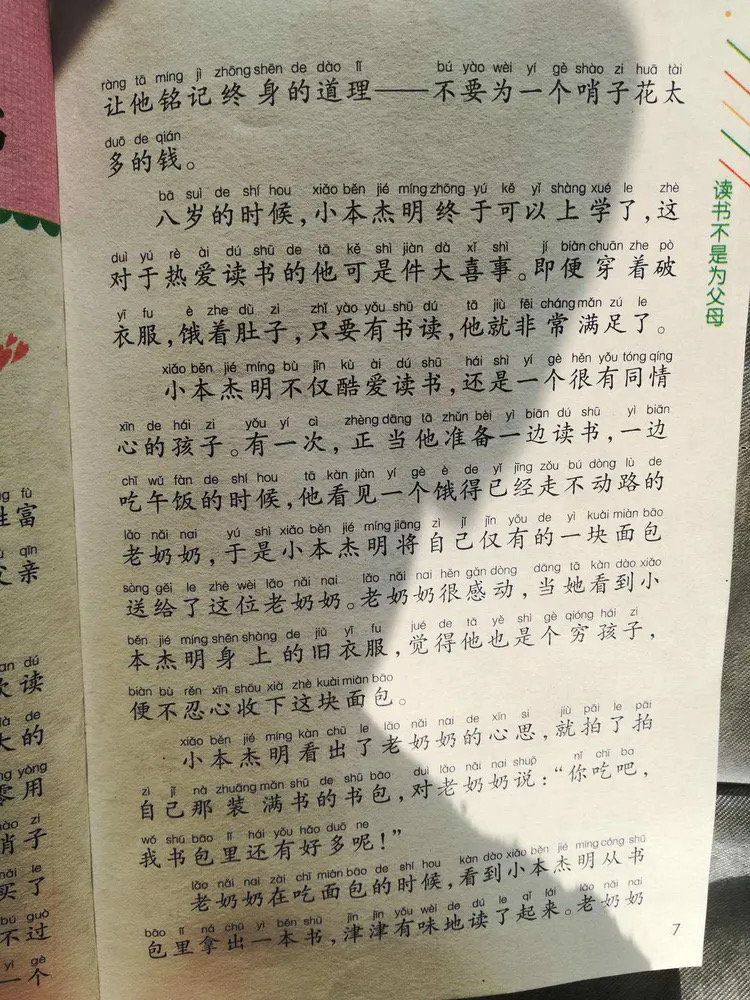 ràng tā míng jì zhōng shēn de dào lǐ bú yào wèi yí gè shào zi huā tài
让他铭记终身的道理——不要为一个哨子花太
duō de qián
多的钱。
bā suì de shí hou xiǎo běn jié míng zhōng yú kě yǐ shàng xué le zhè
八岁的时候，小本杰明终于可以上学了，这
duì yú rè ài dú shū de tā kě shì jiàn dà xǐ shì jí biàn chuān zhe pò
对于热爱读书的他可是件大喜事。即便穿着破
yī fu è zhe dù zi zhǐ yào yǒu shū dú tā jiù fēi cháng mǎn zú le
衣服，饿着肚子，只要有书读，他就非常满足了。
xiǎo běn jié míng bù jǐn kù ài dú shū hái shì yí gè hěn yǒu tóng qíng
小本杰明不仅酷爱读书，还是一个很有同情
xīn de hái zi yǒu yí cì zhèng dāng tā zhǔn bèi yì biān dú shū yì biān
心的孩子。有一次，正当他准备一边读书，一边
chī wǔ fàn de shí hou tā kàn jiàn yí gè è de yǐ jīng zǒu bú dòng lù de
吃午饭的时候，他看见一个饿得已经走不动路的
lǎo nǎi nai yú shì xiǎo běn jié míng jiāng zì jǐ jǐn yǒu de yí kuài miàn bāo
老奶奶，于是小本杰明将自己仅有的一块面包
sòng gěi le zhè wèi lǎo nǎi nai lǎo nǎi nai hěn gǎn dòng dāng tā kàn dào xiǎo
送给了这位老奶奶。老奶奶很感动，当她看到小
běn jié míng shēn shàng de jiù yī fu jué de tā yě shì gè qióng hái zi
本杰明身上的旧衣服，觉得他也是个穷孩子，
biàn bù rěn xīn shōu xià zhè kuài miàn bāo
便不忍心收下这块面包。
xiǎo běn jié míng kàn chū le lǎo nǎi nai de xīn si jiù pāi le pāi
小本杰明看出了老奶奶的心思，就拍了拍
zì jǐ nà zhuāng mǎn shū de shū bāo duì lǎo nǎi nai shuō nǐ chī ba
自己那装满书的书包，对老奶奶说：“你吃吧，
wǒ shū bāo lǐ hái yǒu hǎo duō ne
我书包里还有好多呢！”
lǎo nǎi nai zài chī miàn bāo de shí hou kàn dào xiǎo běn jié míng cóng shū
老奶奶在吃面包的时候，看到小本杰明从书
bāo lǐ ná chū yì běn shū jīn jīn yǒu wèi de dú le qǐ lái lǎo nǎi nai
包里拿出一本书，津津有味地读了起来。老奶奶
7
读书不是为父母